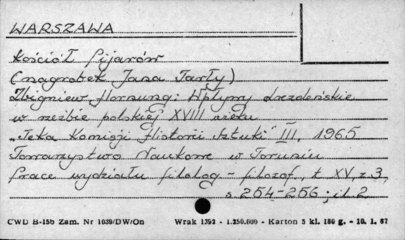 WARSZAWA
Kościół Pijarów
(nagrobek Jana Tarły)
Zbigniew Hornung: Wpływy drezdeńskie
w rzeźbie polskiej XVIII wieku
"Teka Komisji Historii Sztuki" III, 1965
Towarzystwo Naukowe w Toruniu
Prace wydziału filolog.-filozof., t. XV, z. 3,
s. 254-256; il. 2
CWD B-15b Zam. Nr 1039/DW/On Wrak 1392 - 1.250.000 - Karton 5 kl. 180 g. - 10. 1. 67